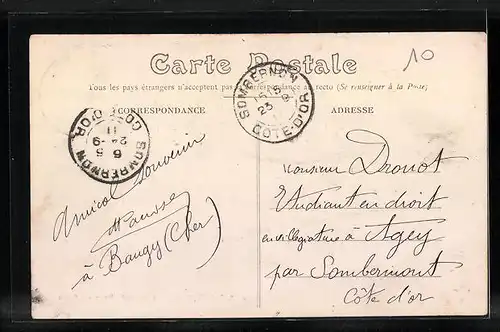 Carte Postale
10
Tous les pays étrangers n'acceptent pas la correspondance au recto (Se renseigner à la Poste)
CORRESPONDANCE
ADRESSE
SOMBERNON
15 15
23 9
CÔTE-D'OR
SOMBERNON
6 5
24-9
11
CÔTE D'OR
Amical Souvenir
à Baugy (Cher)
Monsieur Drouot
Etudiant en droit
en villégiature à Agey
par Sombernont
Côte d'or